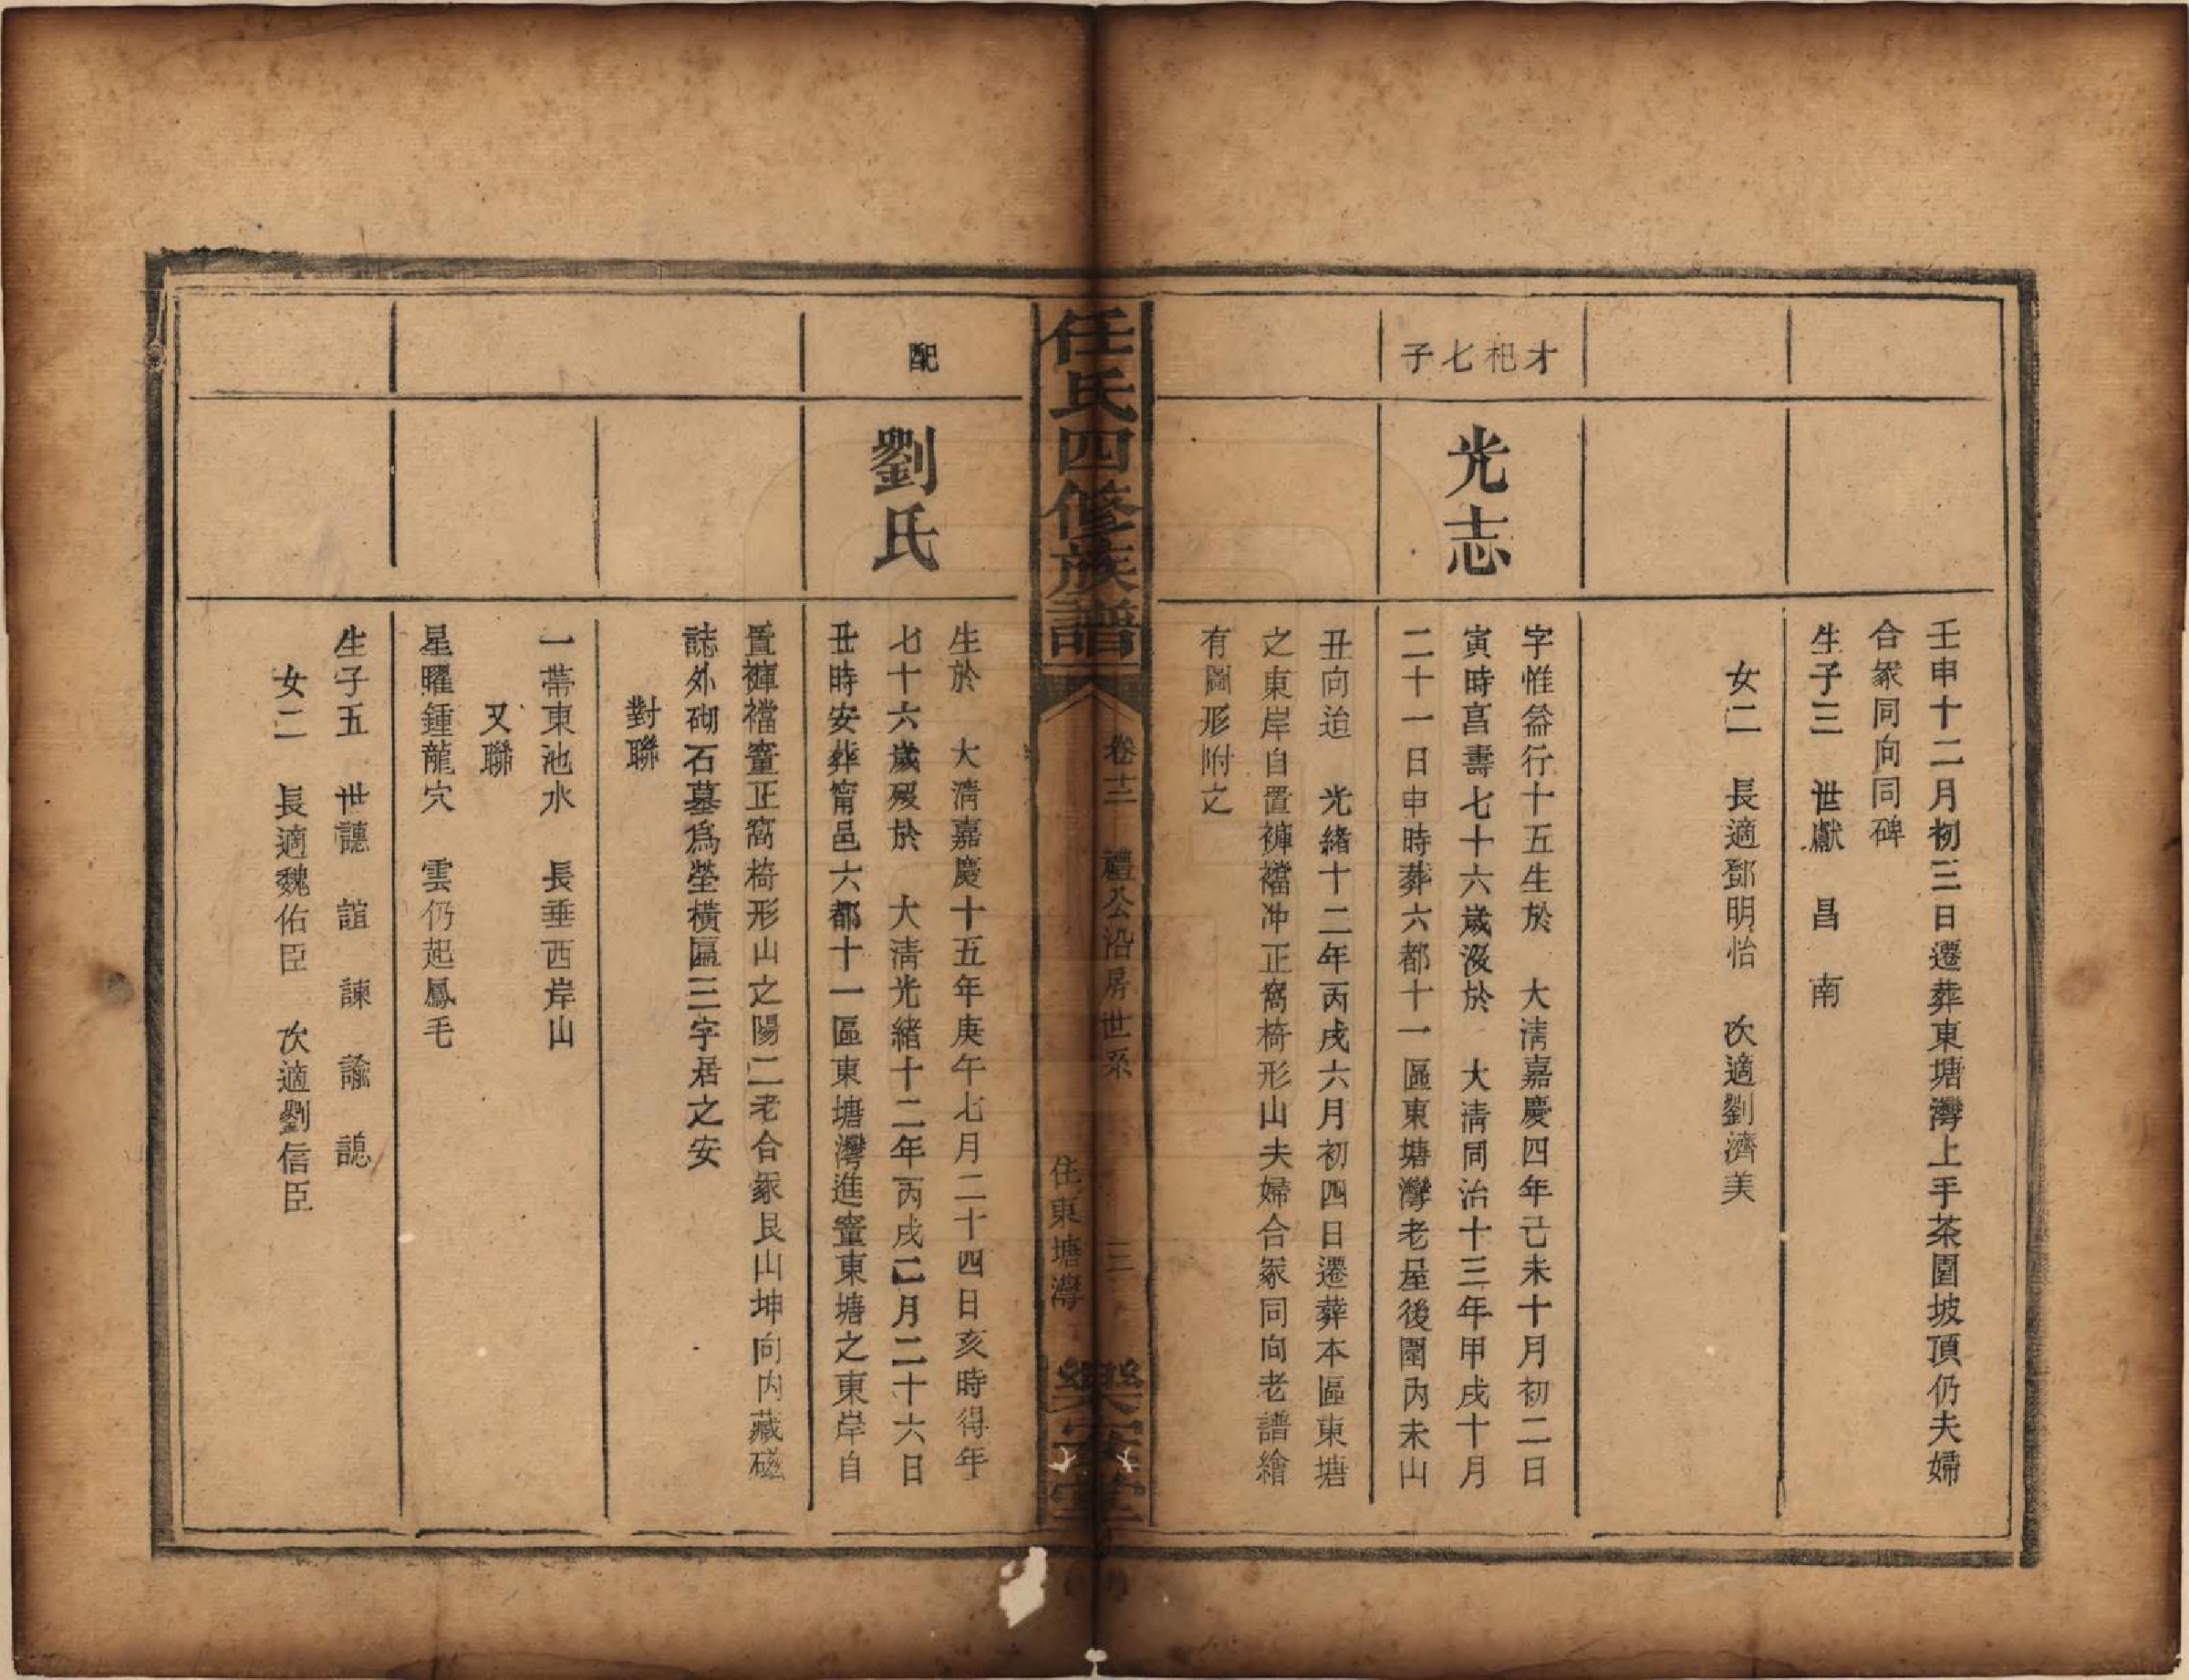 壬申十二月初三日遷葬東塘灣上手茶園坡頂仍夫婦
合冢同向同碑
生子三　世獻　昌　南
女二　長適鄧明怡　次適劉濟美
才杞七子
光志
字惟益行十五生於　大清嘉慶四年己未十月初二日
寅時享壽七十六歲沒於　大清同治十三年甲戌十月
二十一日申時葬六都十一區東塘灣老屋後園內未山
丑向迨　光緒十二年丙戌六月初四日遷葬本區東塘
之東岸自置褲襠冲正窩椅形山夫婦合冢同向老譜繪
有圖形附之
任氏四修族譜
卷十二　禮公沿房世系
三
住東塘灣
樂安堂
配
劉氏
生於　大清嘉慶十五年庚午七月二十四日亥時得年
七十六歲歿於　大清光緒十二年丙戌二月二十六日
丑時安葬甯邑六都十一區東塘灣進童東塘之東岸自
置褲襠童正窩椅形山之陽二老合冢艮山坤向內藏磁
誌外砌石墓為塋橫區三字居之安
對聯
一帶東池水　長垂西岸山
又聯
星曜鍾龍穴　雲仍起鳳毛
生子五　世譓　誼　諫　諭　諰
女二　長適魏佑臣　次適劉信臣